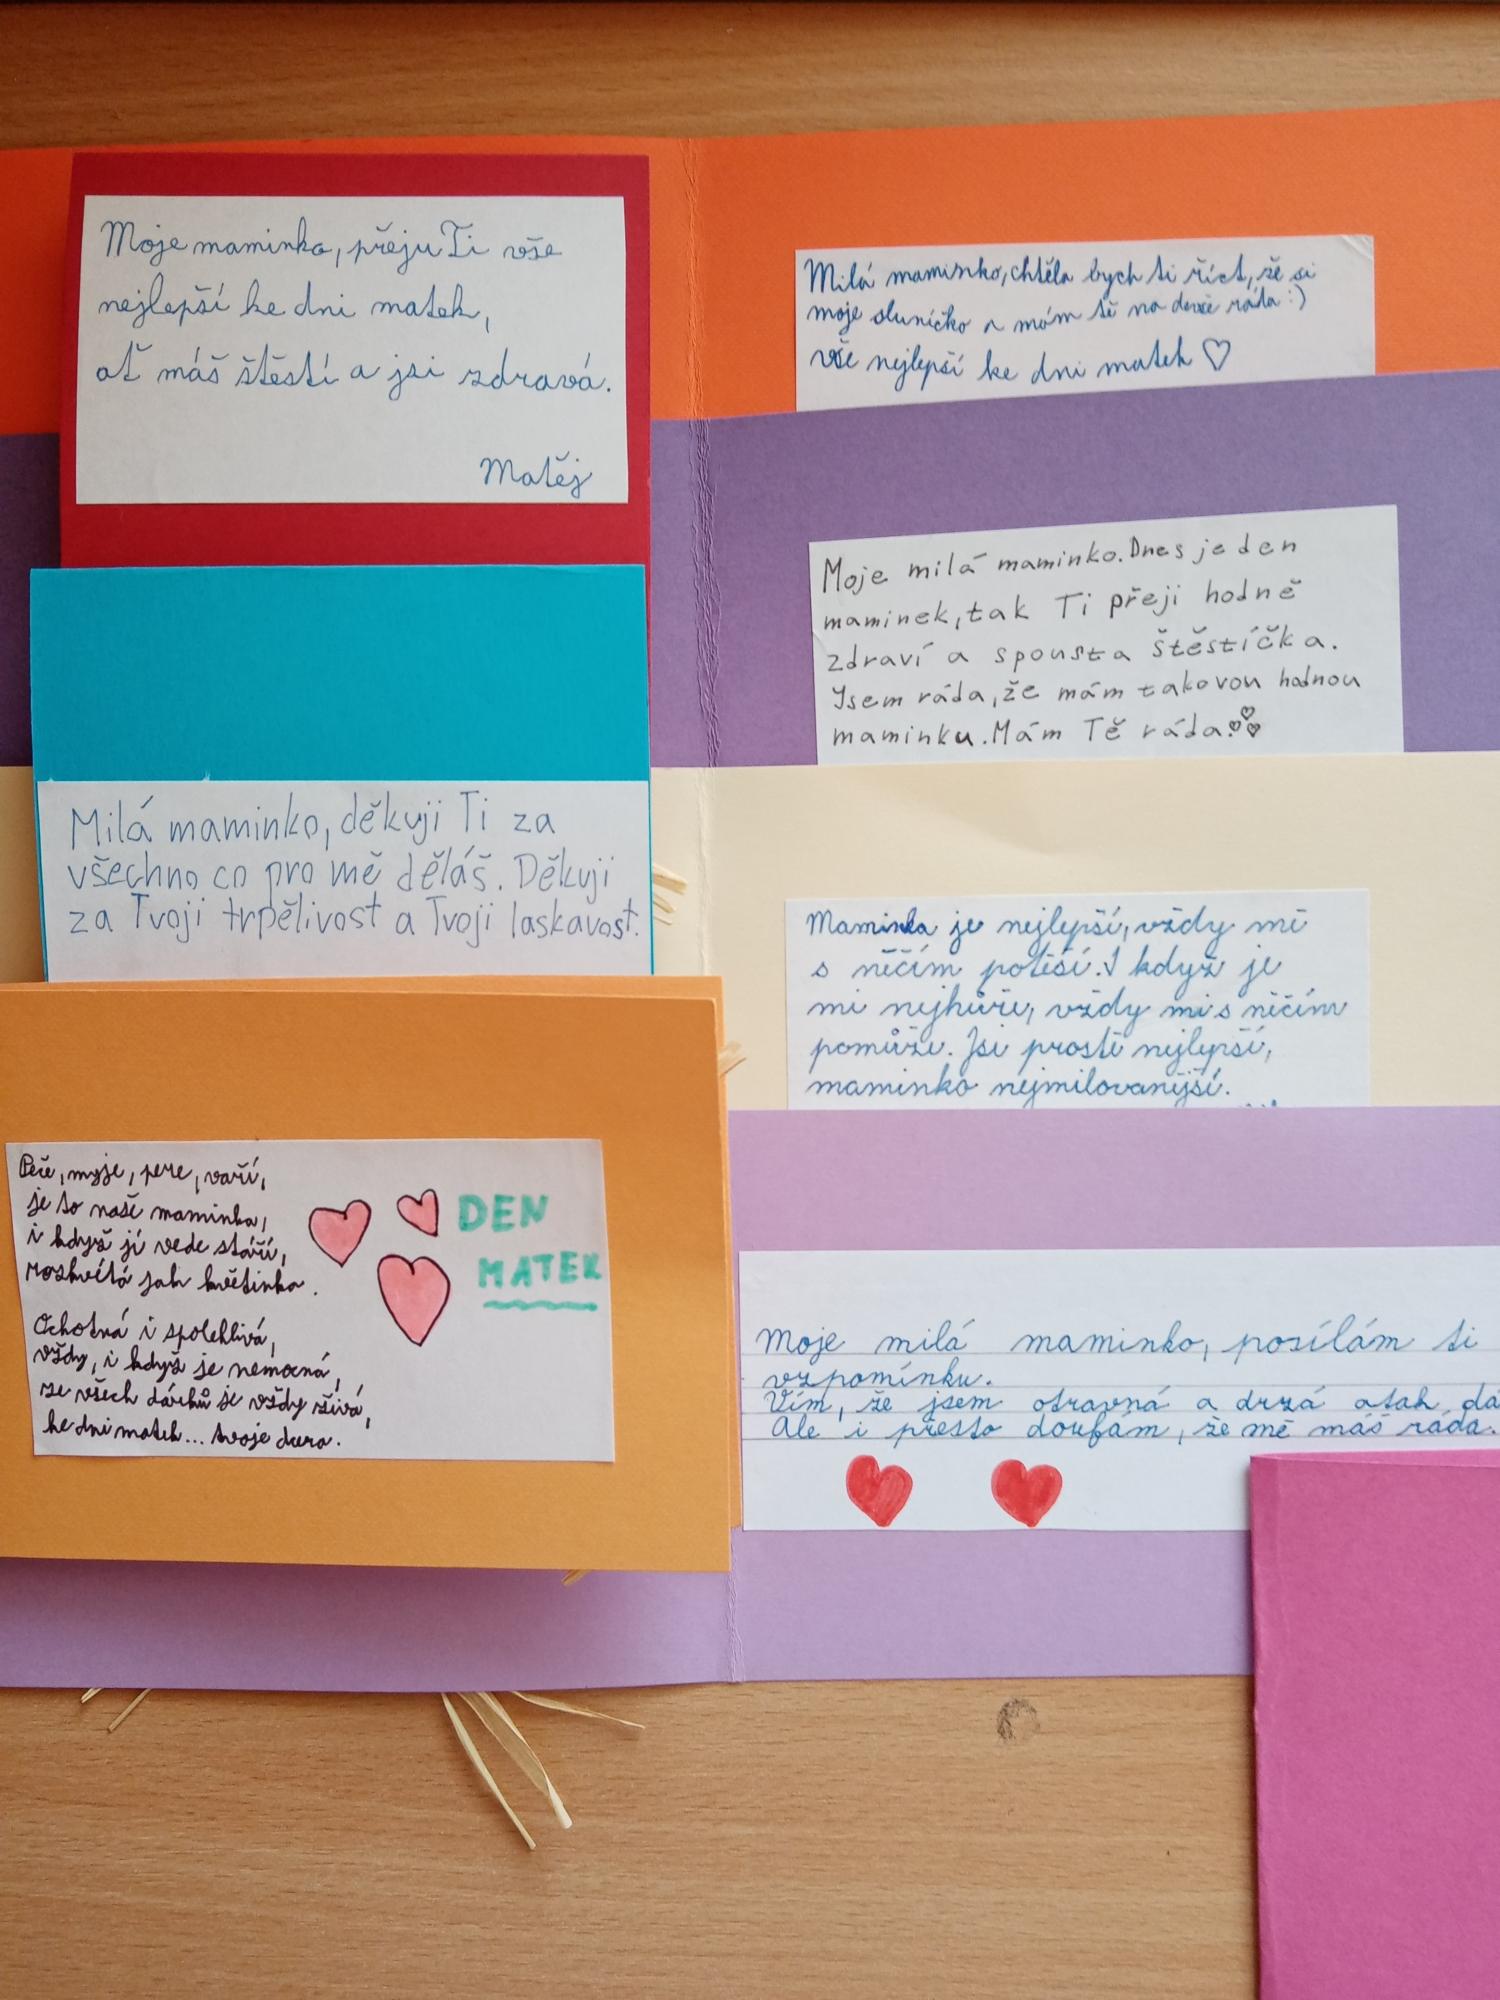 Moje maminko, přeju Ti vše
nejlepší ke dni matek,
ať máš štěstí a jsi zdravá.
Matěj
Milá maminko, chtěla bych ti říct, že si
moje sluníčko a mám tě na dosě ráda :)
vše nejlepší ke dni matek ♡
Moje milá maminko. Dnes je den
maminek, tak Ti přeji hodně
zdraví a spousta štěstíčka.
Jsem ráda, že mám takovou hodnou
maminku. Mám Tě ráda.
Milá maminko, děkuji Ti za
všechno co pro mě děláš. Děkuji
za Tvoji trpělivost a Tvoji laskavost.
Maminka je nejlepší, vždy mě
s něčím potěší. I když je
mi nejhůře, vždy mi s něčím
pomůže. Jsi prostě nejlepší,
maminko nejmilovanější.
Peče, myje, pere, vaří,
je to naše maminka,
i když jí vede stáří,
rozkvítá jak květinka.
Ochotná i spolehlivá,
vždy, i když je nemocná,
ze všech dárků je vždy živá,
ke dni matek... tvoje dcera.
DEN
MATEK
Moje milá maminko, posílám ti
vzpomínku.
Vím, že jsem otravná a drzá atak dá
Ale i přesto doufám, že mě máš ráda.